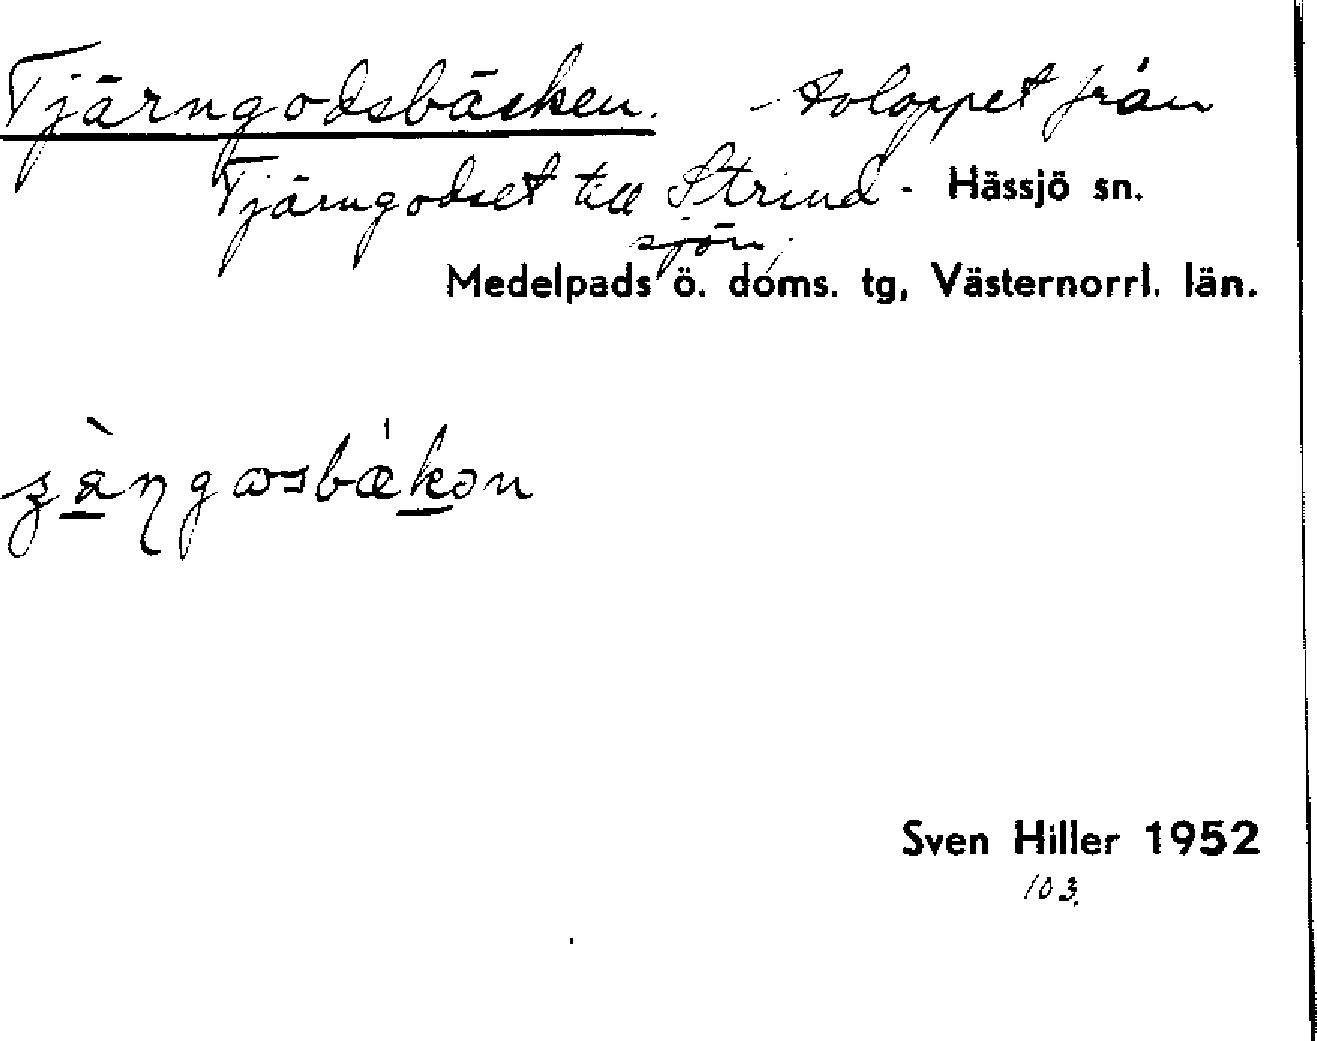 Tjärngodsbäcken. - Avloppet från
Tjärngodset till Strind-
Hässjö sn.
sjön.
Medelpads ö. doms. tg, Västernorrl. län.
Sven Hiller 1952
103.